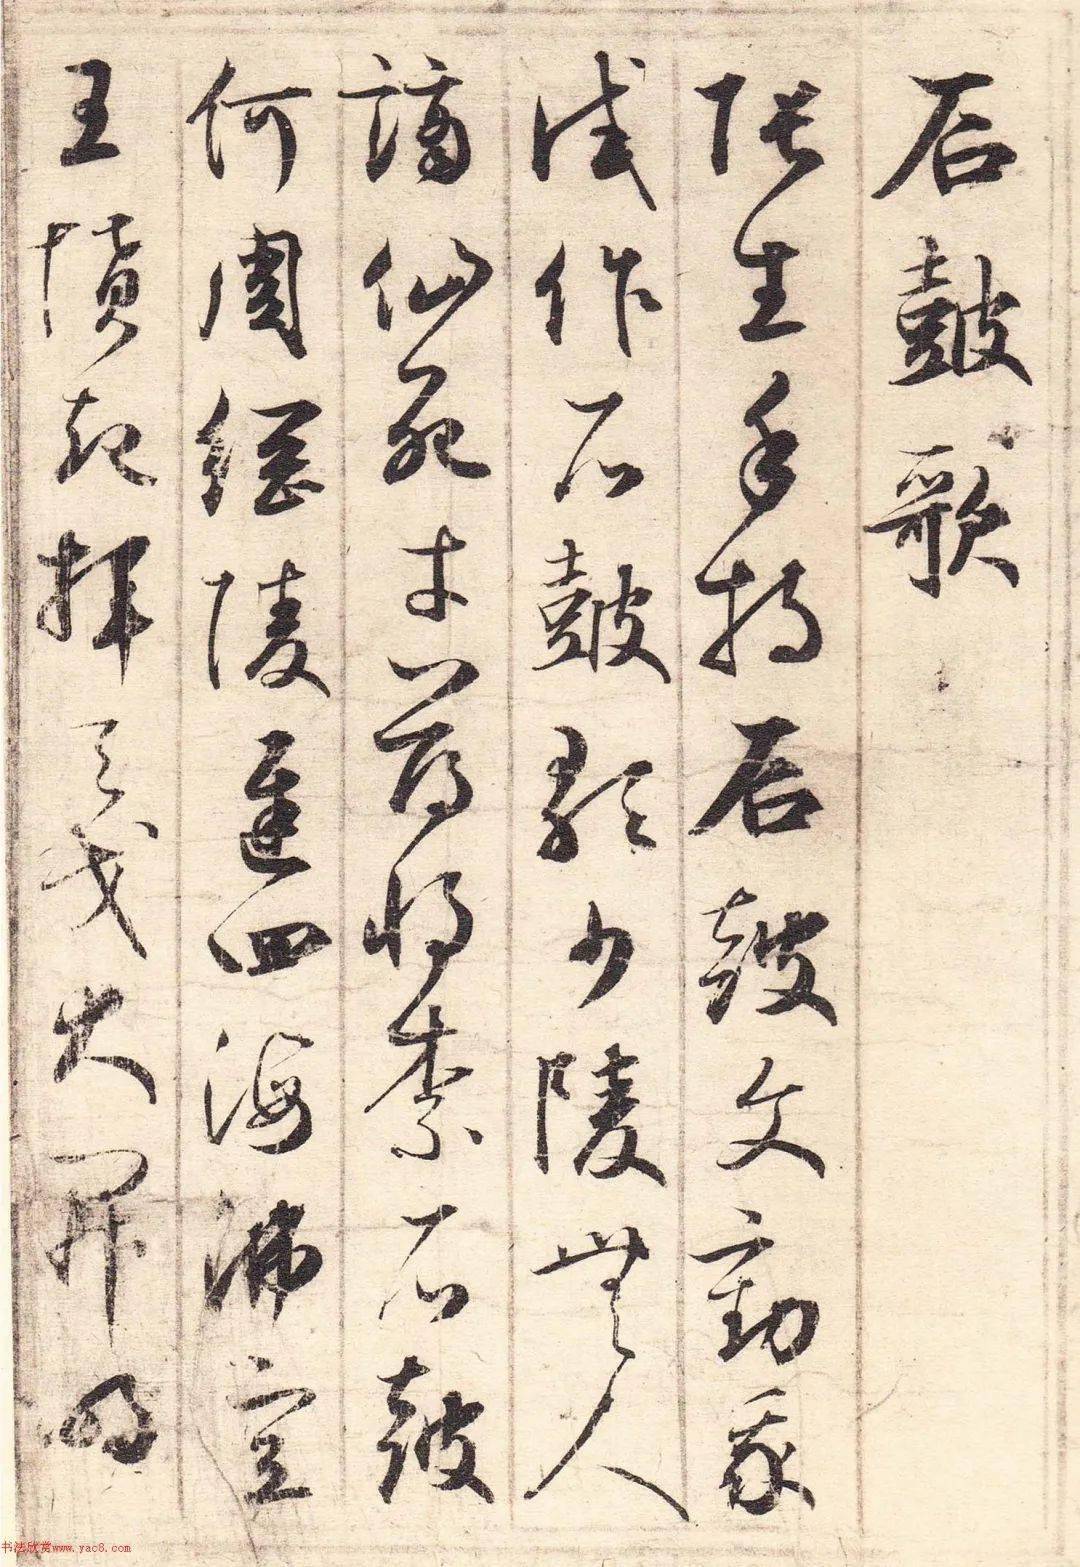 石鼓歌
张生手持石鼓文劝我
试作石鼓歌少陵无人
谪仙死才薄将奈石鼓
何周纲陵迟四海沸宣
王愤起挥天戈大开明
书法欣赏www.yac8.com